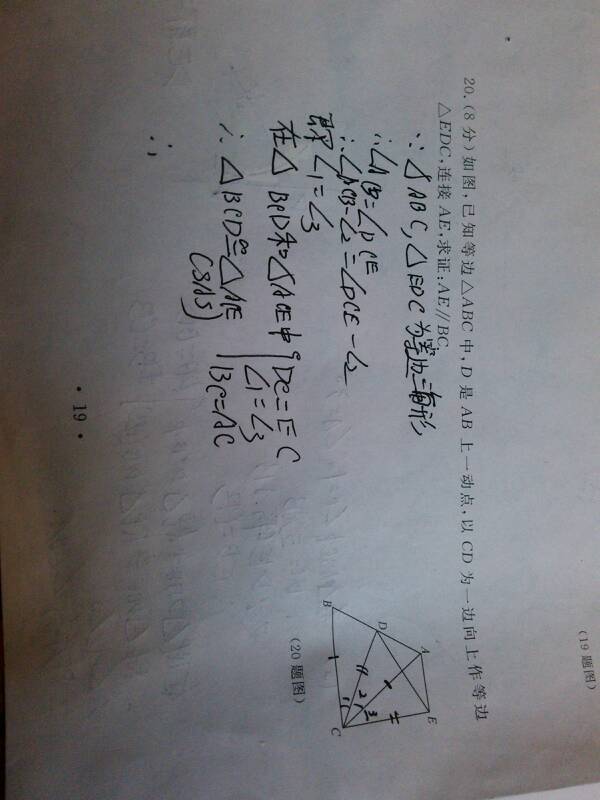 (19题图)
20.(8分)如图,已知等边△ABC中,D是AB上一动点,以CD为一边向上作等边
△EDC,连接AE,求证:AE//BC
∵△ABC,△EDC为等边三角形
∴∠ACB=∠DCE
∴∠ACB-∠2=∠DCE-∠2
即∠1=∠3
在△BCD和△ACE中
DC=EC
∠1=∠3
BC=AC
∴△BCD≌△ACE
(SAS)
∴
A
E
D
B
C
1
2
3
(20题图)
·19·